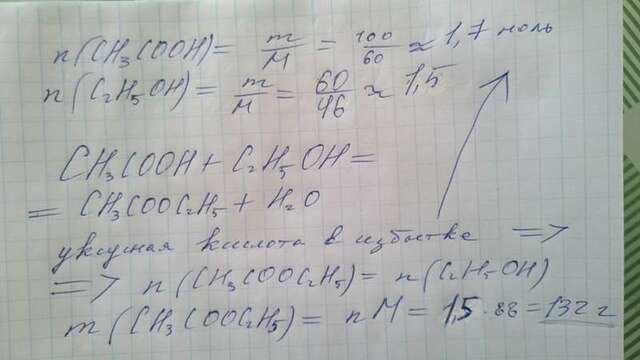 n(CH₃COOH) = m/M = 100/60 ≈ 1,7 моль
n(C₂H₅OH) = m/M = 60/46 ≈ 1,5
CH₃COOH + C₂H₅OH =
= CH₃COOC₂H₅ + H₂O
уксусная кислота в избытке =>
=> n(CH₃COOC₂H₅) = n(C₂H₅OH)
m(CH₃COOC₂H₅) = nM = 1,5 · 88 = 132 г